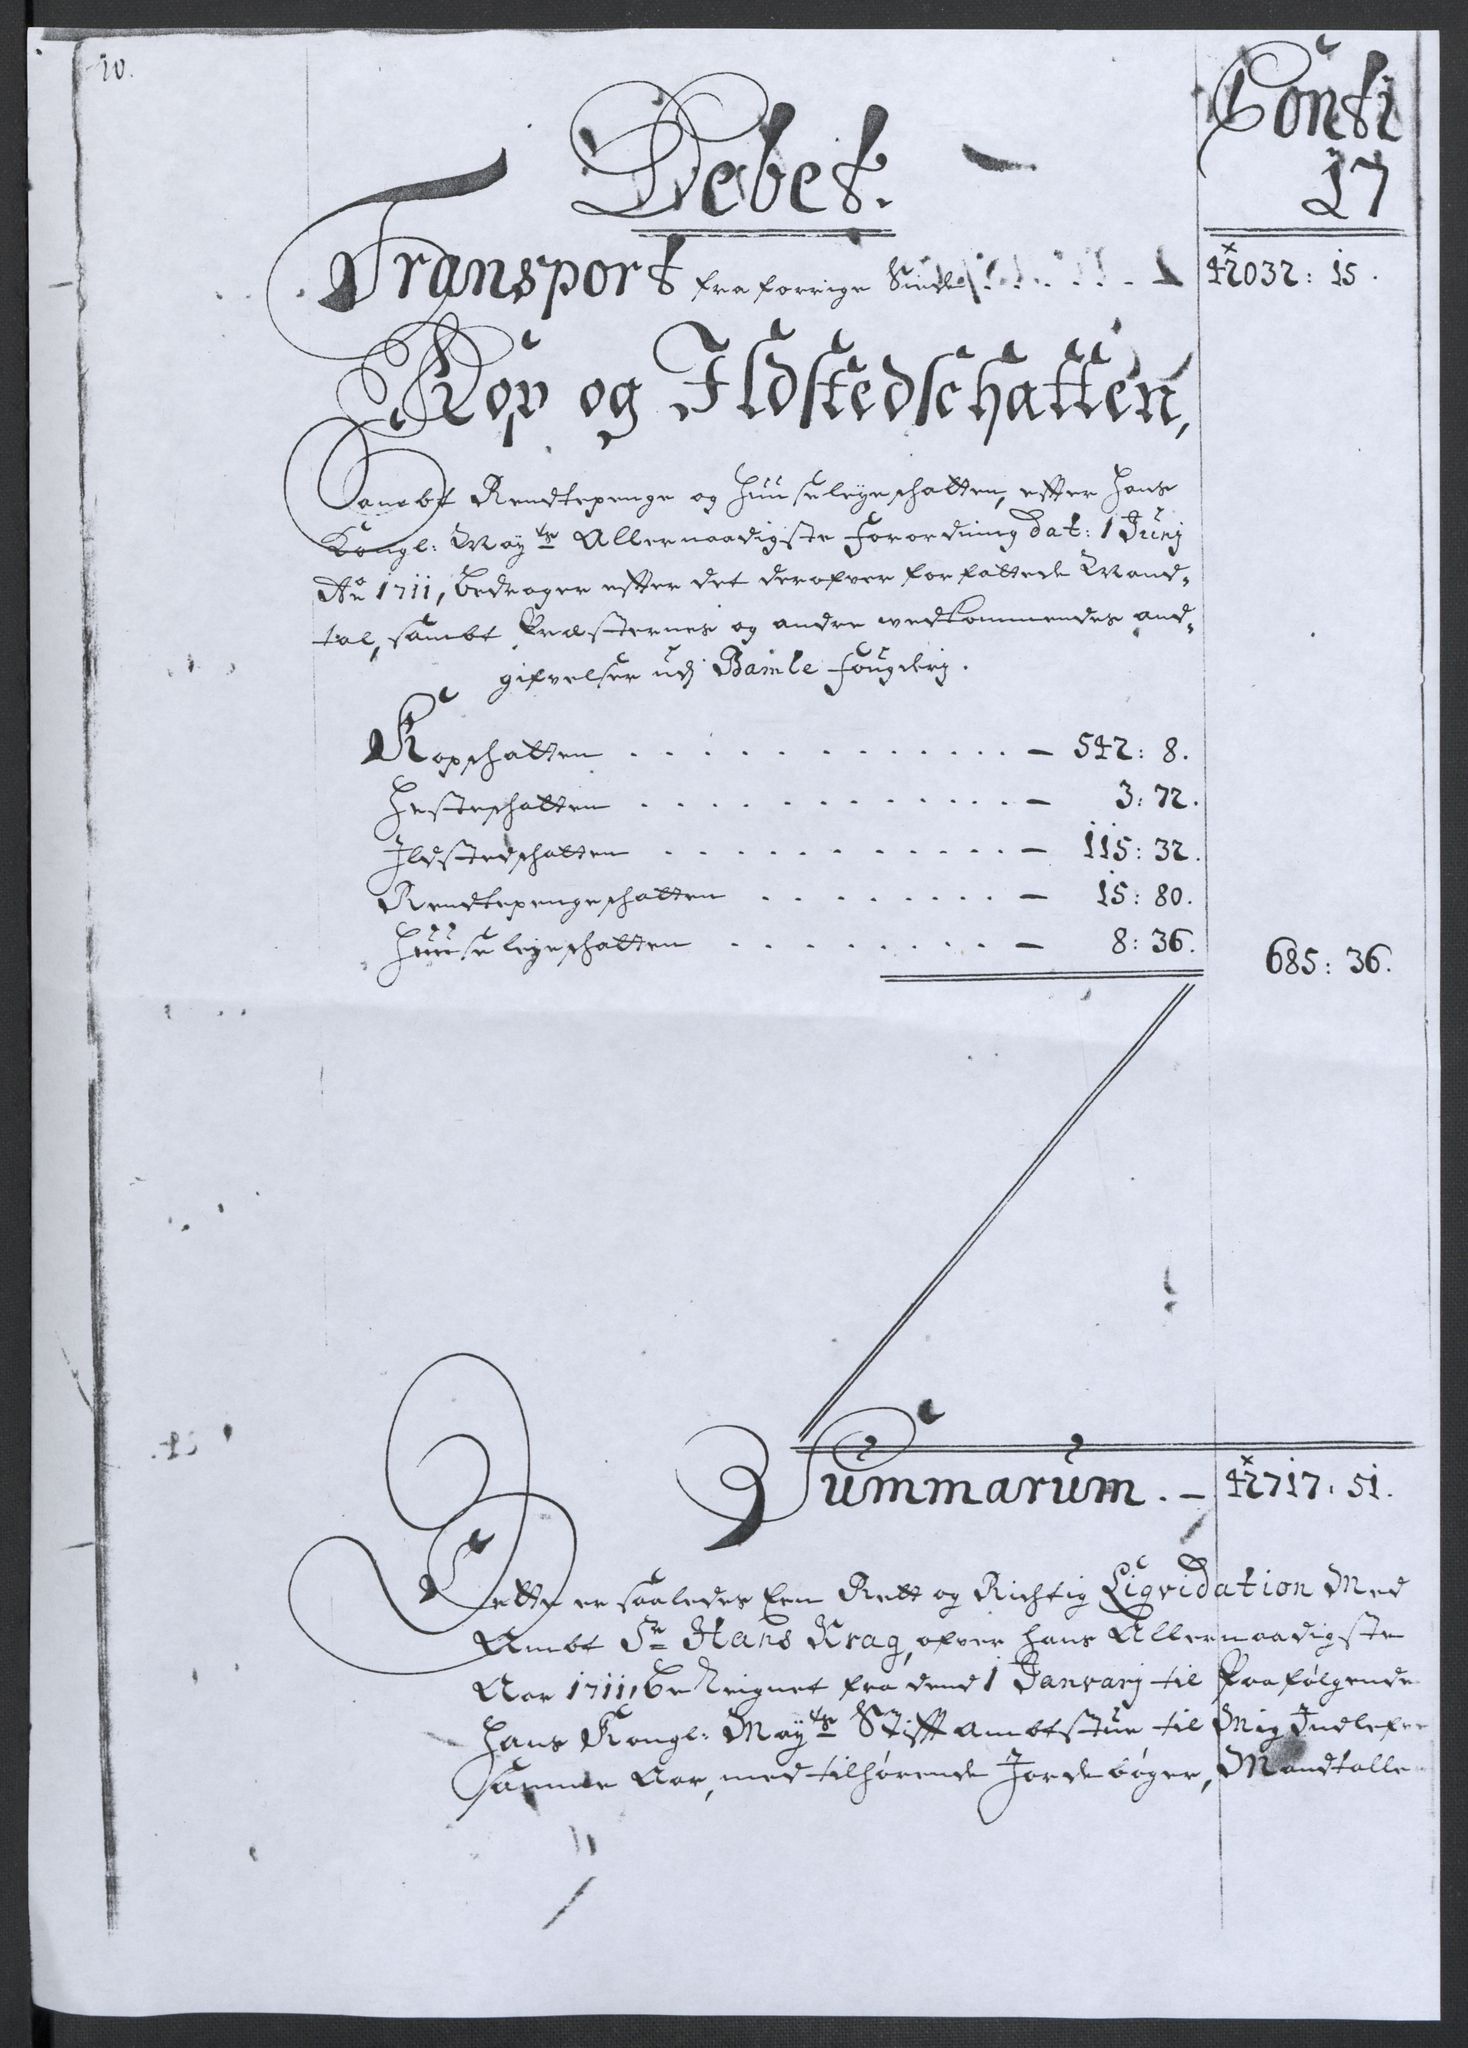 10.
Conti
17
Debet.
Transport fra forrige Siide 42032: 15.
Kop og Ildstedschatten,
Sambt Rendtepenge og Huuseleyeschatten, efter Hans
Kongl: Mayts Allernaadigste Forordning Dat: 1 Junj
Ao 1711, bedrager efter det derofver forfattede Mand-
tal, sambt Præsternes og andre vedkommendes and-
gifvelser udj Bamle fougderj.
Kopschatten . . . . . . . . . . . . . — 542: 8.
Hesteschatten . . . . . . . . . . . . . — 3: 72.
Ildstedschatten . . . . . . . . . . . . — 115: 32.
Rendtepengeschatten . . . . . . . . — 15: 80.
Huuseleyeschatten . . . . . . . . . — 8: 36. 685: 36.
Summarum. — 42717: 51.
Dette er saaledes Een Rett og Richtig Liqvidation Med
Ambt Sr Hans Krag, ofver hans Allernaadigste
Aar 1711, beReignet fra dend 1 Janvarj til Paafølgende
Hans Kongl: Mayts Stifft ambtstue til Mig Indlefver
samme Aar, med tilhørende Jordebøger, Mandtalle